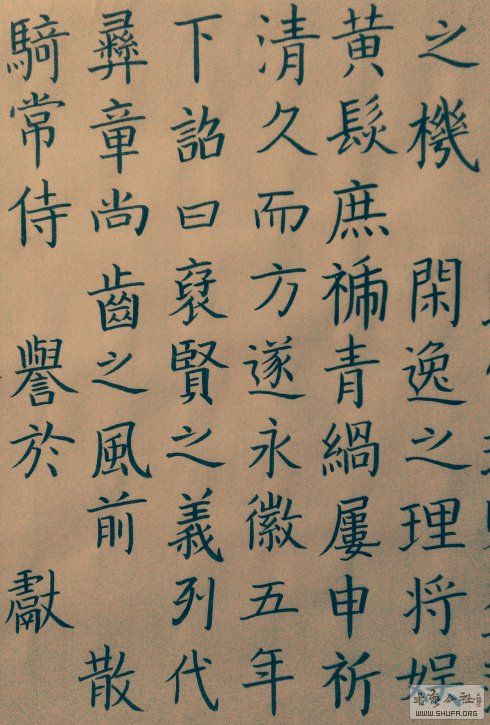 之機 閑逸之理将娱
黃髮庶 青緺屢申祈
清久而方遂永徽五年
下詔曰裦賢之義列代
彝章尚齒之風前 散
騎常侍 譽於 獻
书法公社
WWW.SHUFA.ORG